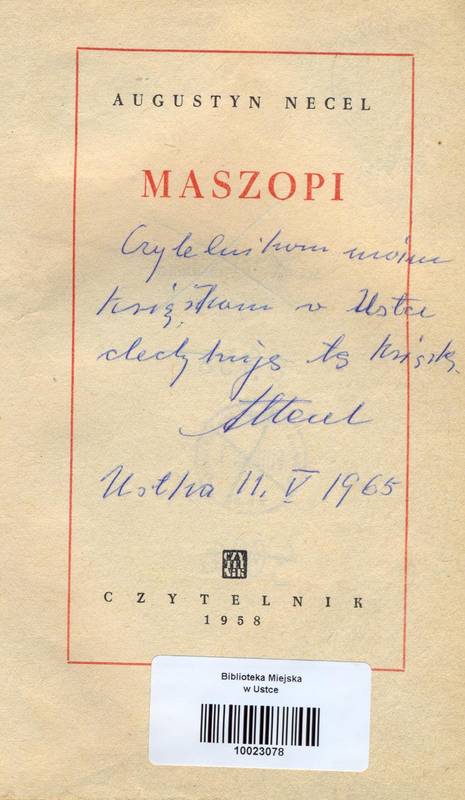 AUGUSTYN NECEL
MASZOPI
Czytelnikom moim
książkom w Ustce
dedykuję tą książkę
ANecel
Ustka 11. V 1965
CZY
TEL
NIK
CZYTELNIK
1958
Biblioteka Miejska
w Ustce
10023078